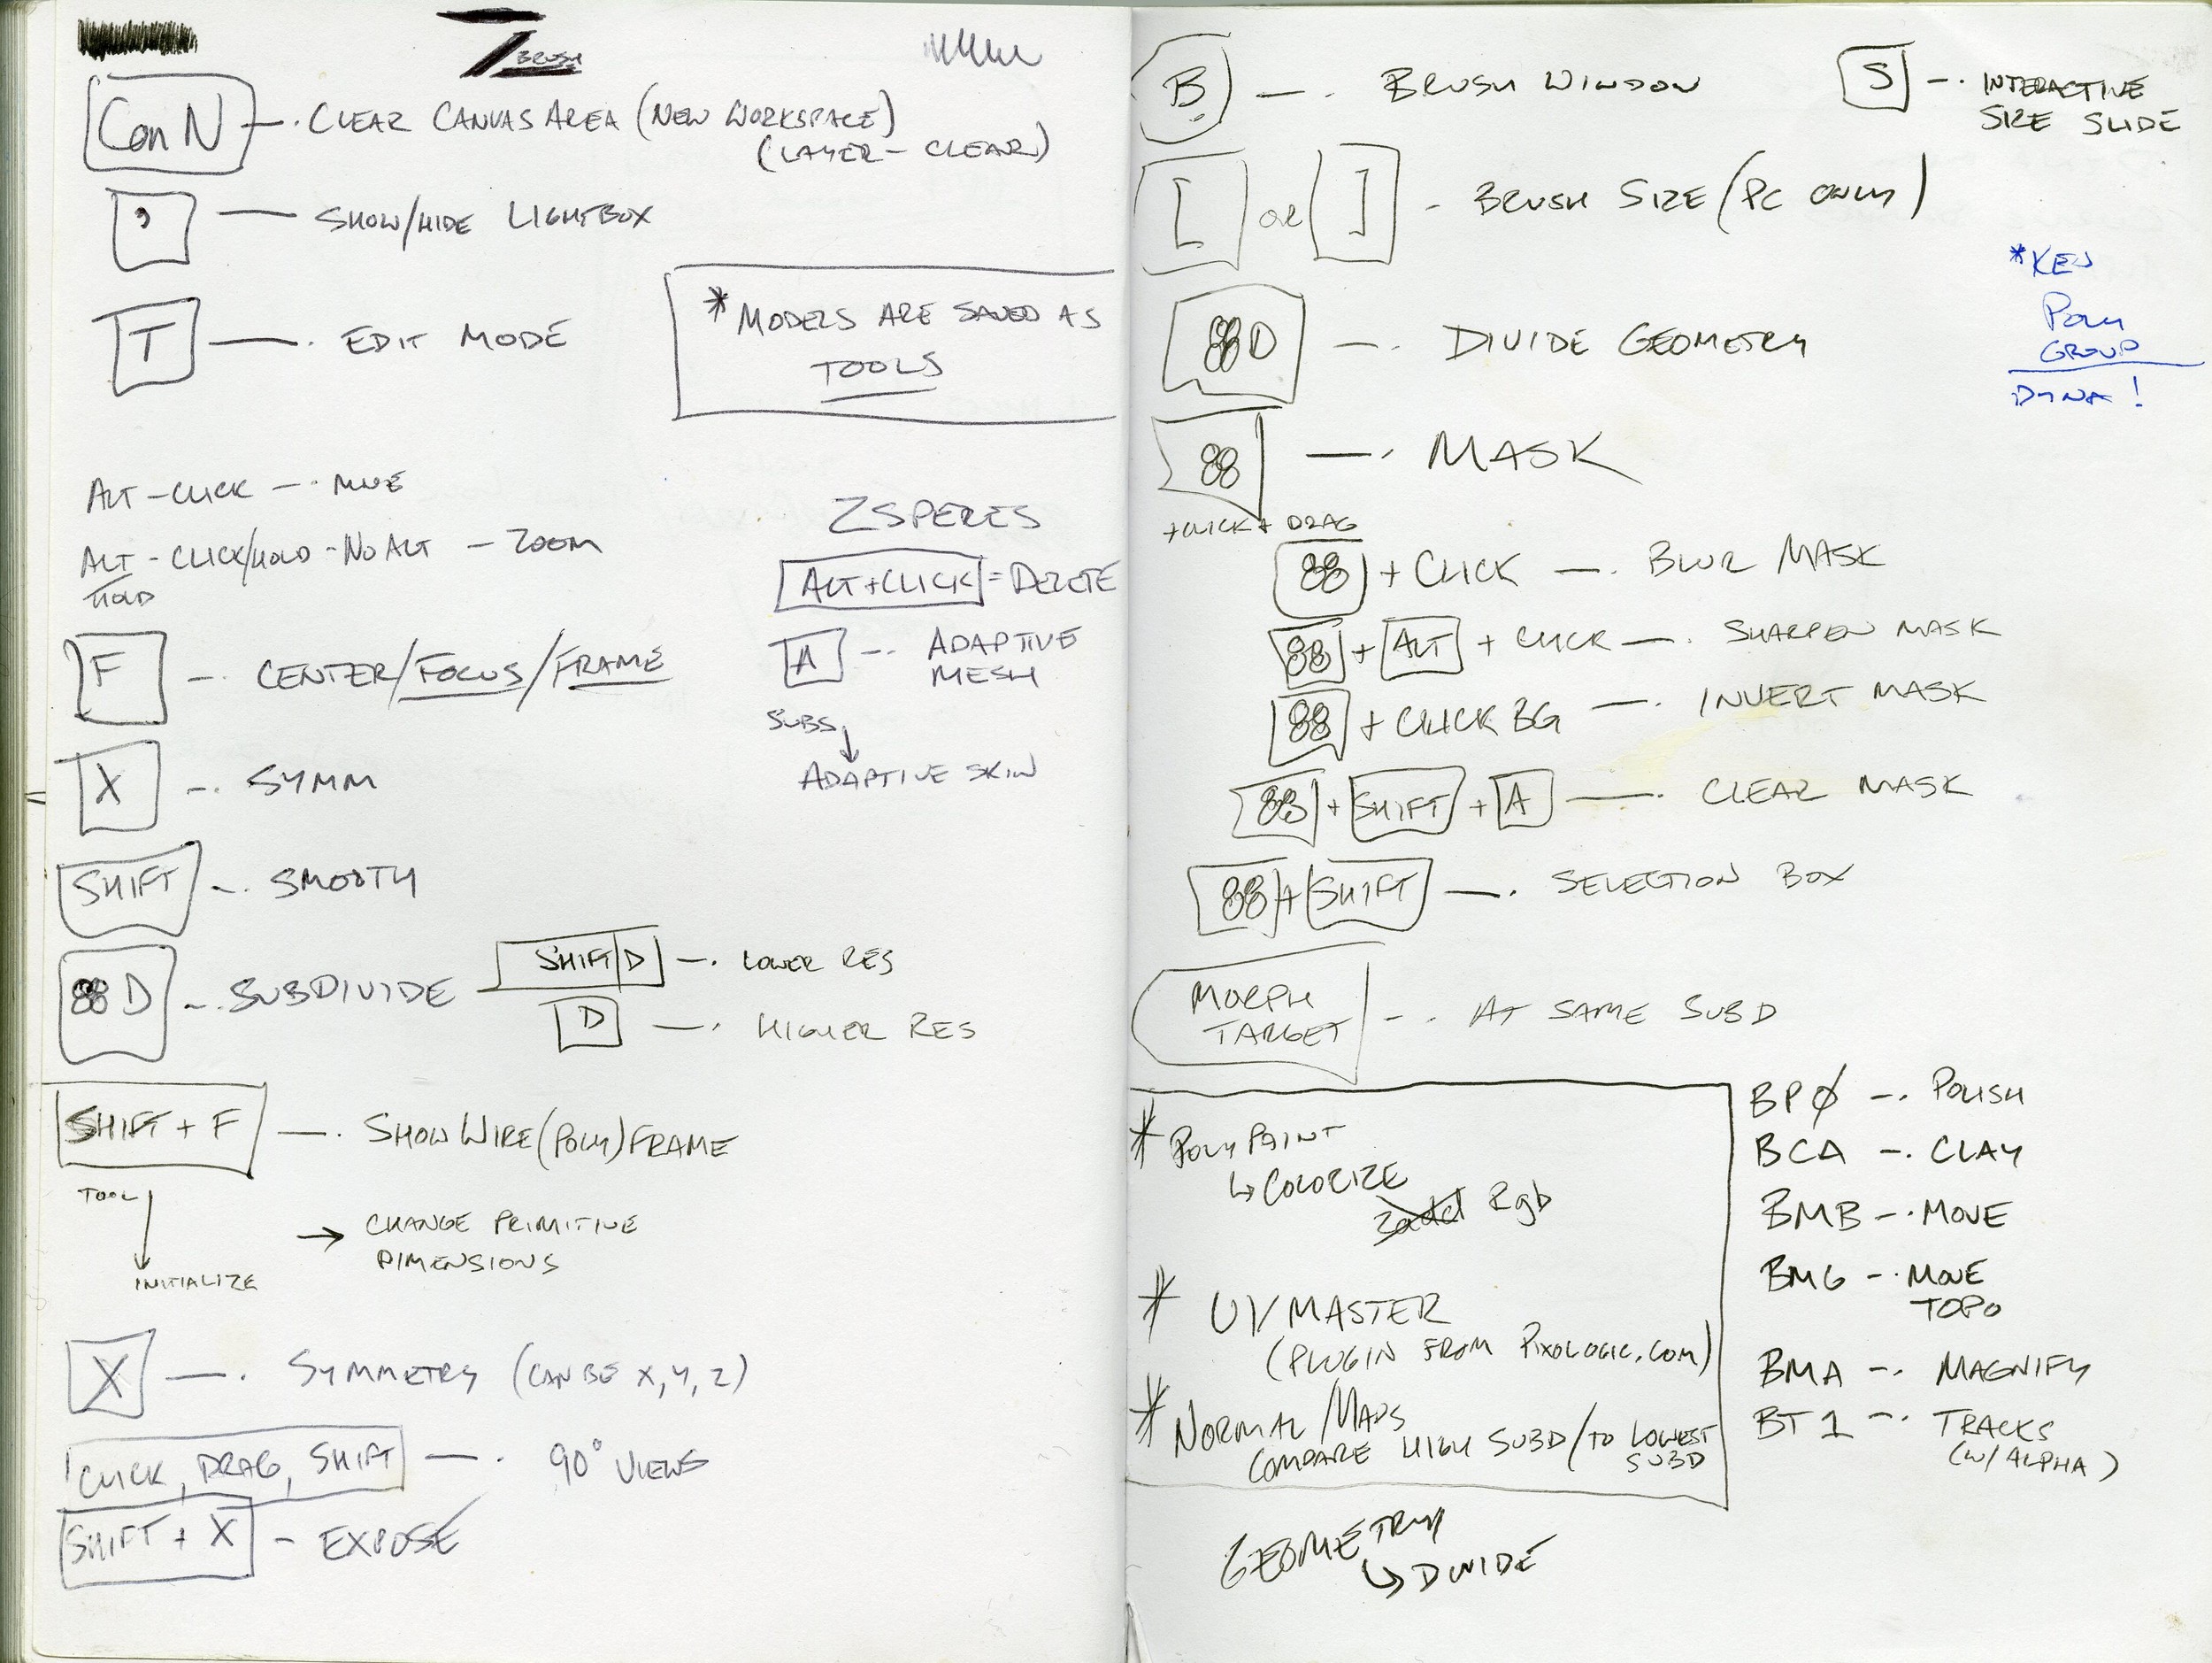 Z BRUSH
Con N —. CLEAR CANVAS AREA (NEW WORKSPACE)
(LAYER - CLEAR)
, — SHOW/HIDE LIGHTBOX
T —. EDIT MODE
* MODELS ARE SAVED AS
TOOLS
ALT - CLICK —. MOVE
ALT - CLICK/HOLD - NO ALT — ZOOM
HOLD
ZSPERES
ALT+CLICK = DELETE
A —. ADAPTIVE
MESH
SUBS
↓
ADAPTIVE SKIN
F —. CENTER/FOCUS/FRAME
X —. SYMM
SHIFT —. SMOOTH
⌘ D —. SUBDIVIDE
SHIFT D —. LOWER RES
D —. HIGHER RES
SHIFT + F —. SHOW WIRE(POLY)FRAME
TOOL
↓
INITIALIZE
→ CHANGE PRIMITIVE
DIMENSIONS
X —. SYMMETRY (CAN BE X, Y, Z)
CLICK, DRAG, SHIFT —. 90° VIEWS
SHIFT + X - EXPOSE
B —. BRUSH WINDOW
S —. INTERACTIVE
SIZE SLIDE
[ OR ] - BRUSH SIZE (PC ONLY)
*KEY
POLY
GROUP
DYNA!
⌘ D —. DIVIDE GEOMETRY
⌘ —. MASK
+CLICK+ DRAG
⌘ + CLICK —. BLUR MASK
⌘ + ALT + CLICK —. SHARPEN MASK
⌘ + CLICK BG —. INVERT MASK
⌘ + SHIFT + A —. CLEAR MASK
⌘ + SHIFT —. SELECTION BOX
MORPH
TARGET —. AT SAME SUBD
* POLYPAINT
↳ COLORIZE
Zadd Rgb
* UV MASTER
(PLUGIN FROM PIXOLOGIC.COM)
* NORMAL/MAPS
COMPARE HIGH SUBD/TO LOWEST
SUBD
BPØ —. POLISH
BCA —. CLAY
BMB —. MOVE
BMG —. MOVE
TOPO
BMA —. MAGNIFY
BT1 —. TRACKS
(W/ALPHA)
GEOMETRY
↳ DIVIDE